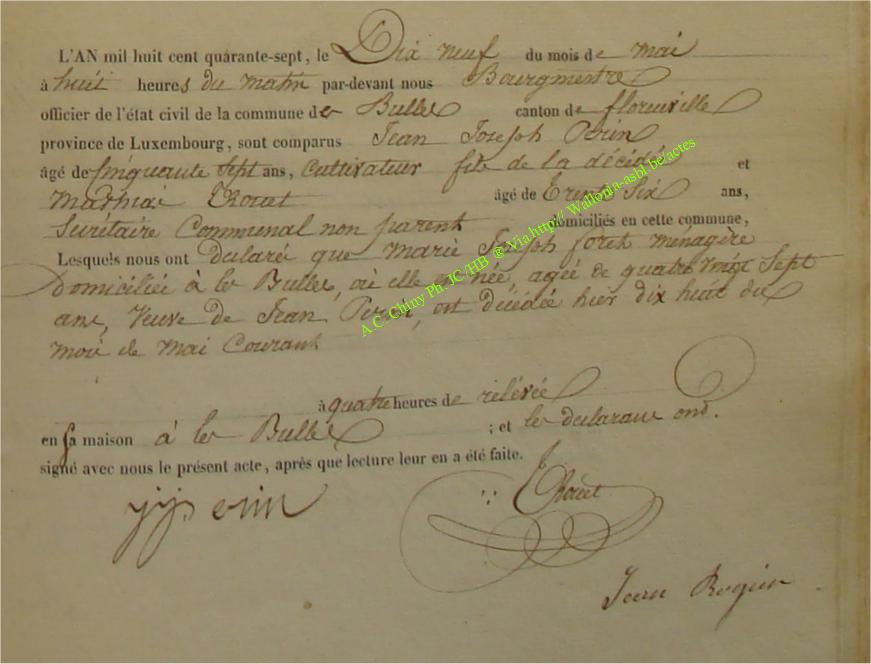 L'AN mil huit cent quarante-sept, le Dix neuf du mois de mai
à huit heures du matin par-devant nous Bourgmestre
officier de l'état civil de la commune de Bulles canton de florenville
province de Luxembourg, sont comparus Jean Joseph Perin
âgé de cinquante Sept ans, Cultivateur fils de la décédée et
âgé de Trente Six ans,
Sécrétaire Communal non parent domiciliés en cette commune,
Lesquels nous ont declaré que marie Joseph foret ménagère
Domiciliée à les Bulles, où elle née, agée de quatre vingt Sept
ans, Veuve de Jean Perin, est décédée hier dix huit du
mois de mai Courant
à quatre heures de relévée
en sa maison à les Bulles ; et les declarans ont
signé avec nous le présent acte, après que lecture leur en a été faite.
jjperin
Jean
A.C. Chiny Ph. JC/HB @ Via http// Wallonia-asbl.be/actes